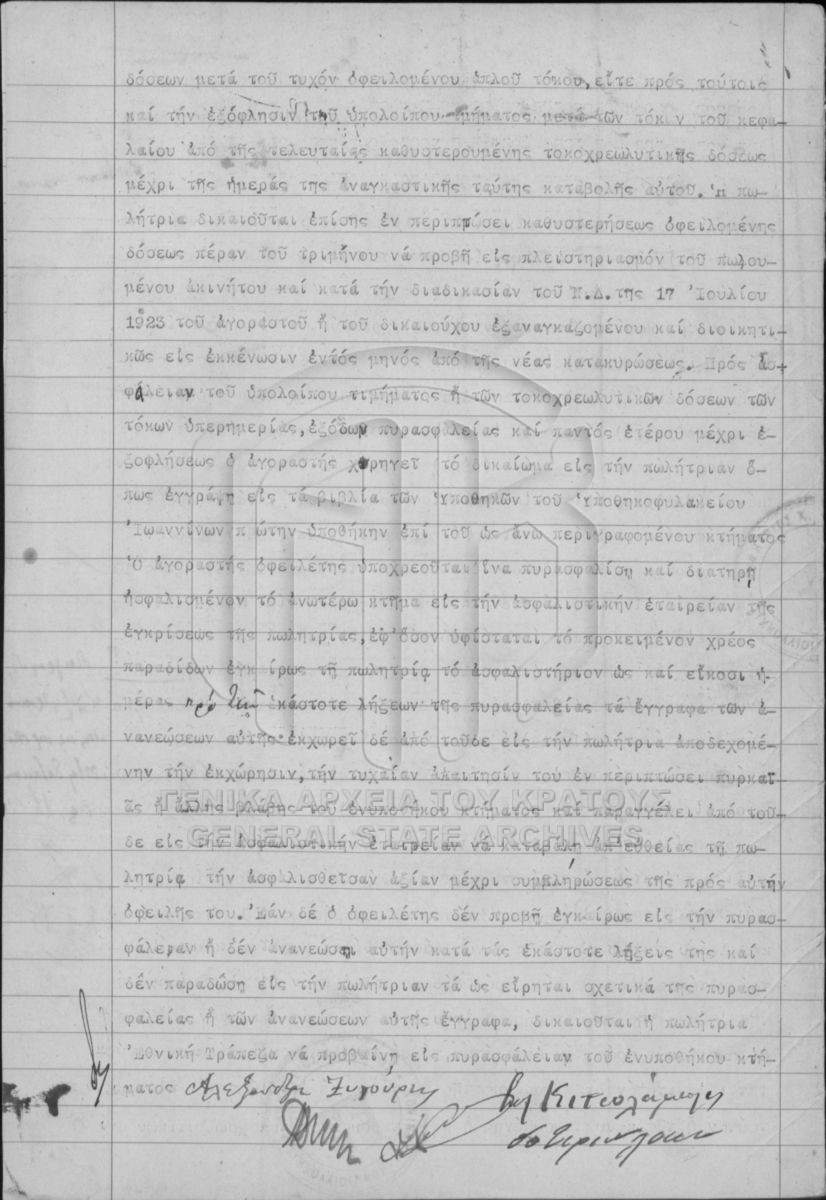 δόσεων μετά τοῦ τυχόν ὀφειλομένου ἁπλοῦ τόκου, εἴτε πρός τούτοις
καί τήν ἐξόφλησιν τοῦ ὑπολοίπου τμήματος μετά τῶν τόκων τοῦ κεφα-
λαίου ἀπό τῆς τελευταίας καθυστερουμένης τοκοχρεωλυτικῆς δόσεως
μέχρι τῆς ἡμεράς της ἀναγκαστικῆς ταύτης καταβολῆς αὐτοῦ. Ἡ πω-
λήτρια δικαιοῦται ἐπίσης ἐν περιπτώσει καθυστερήσεως ὀφειλομένης
δόσεως πέραν τοῦ τριμήνου νά προβῇ εἰς πλειστηριασμόν τοῦ πωλου-
μένου ἀκινήτου καί κατά τήν διαδικασίαν τοῦ Ν.Δ. της 17 Ἰουλίου
1923 τοῦ ἀγοραστοῦ ἤ τοῦ δικαιούχου ἐξαναγκαζομένου καί διοικητι-
κῶς εἰς ἐκκένωσιν ἐντός μηνός ἀπό τῆς νέας κατακυρώσεως. Πρός ἀσ-
φάλειαν τοῦ ὑπολοίπου τιμήματος ἤ τῶν τοκοχρεωλυτικῶν δόσεων τῶν
τόκων ὑπερημερίας, ἐξόδων πυρασφαλείας καί παντός ἑτέρου μέχρι ἐ-
ξοφλήσεως ὁ ἀγοραστής χορηγεῖ τό δικαίωμα εἰς τήν πωλήτριαν ὅ-
πως ἐγγράψῃ εἰς τά βιβλία τῶν ὑποθηκῶν τοῦ Ὑποθηκοφυλακείου
Ἰωαννίνων πρώτην ὑποθήκην ἐπί τοῦ ὡς ἄνω περιγραφομένου κτήματος
Ὁ ἀγοραστής ὀφειλέτης ὑποχρεοῦται ἵνα πυρασφαλίσῃ καί διατηρῇ
ἠσφαλισμένον τό ἀνωτέρω κτῆμα εἰς τήν ἀσφαλιστικήν ἑταιρείαν τῆς
ἐγκρίσεως τῆς πωλητρίας, ἐφ'ὅσον ὑφίσταται τό προκειμένον χρέος
παραδίδων ἐγκαίρως τῇ πωλητρίᾳ τό ἀσφαλιστήριον ὡς καί εἴκοσι ἡ-
μέρας πρό τῶν ἑκάστοτε λήξεων τῆς πυρασφαλείας τά ἔγγραφα τῶν ἀ-
νανεώσεων αὐτῆς ἐκχωρεῖ δέ ἀπό τοῦδε εἰς τήν πωλήτρια ἀποδεχομέ-
νην τήν ἐκχώρησιν, τήν τυχαίαν ἀπαίτησίν του ἐν περιπτώσει πυρκαϊ
ᾶς ἤ ἄλλης βλάβης τοῦ ἐνυποθήκου κτήματος καί παραγγέλει ἀπό τοῦ-
δε εἰς τήν ἀσφαλιστικήν ἑταιρείαν νά καταβάλῃ ἀπ'εὐθείας τῇ πω-
λητρίᾳ τήν ἀσφαλισθεῖσαν ἀξίαν μέχρι συμπληρώσεως τῆς πρός αὐτήν
ὀφειλῆς του. Ἐάν δέ ὁ ὀφειλέτης δέν προβῇ ἐγκαίρως εἰς τήν πυρασ-
φάλειαν ἤ δέν ἀνανεώσῃ αὐτήν κατά τάς ἑκάστοτε λήξεις της καί
δέν παραδώσῃ εἰς τήν πωλήτριαν τά ὡς εἴρηται σχετικά της πυρασ-
φαλείας ἤ τῶν ἀνανεώσεων αὐτῆς ἔγγραφα, δικαιοῦται ἡ πωλήτρια
Ἐθνική Τράπεζα νά προβαίνῃ εἰς πυρασφάλειαν τοῦ ἐνυποθήκου κτή-
ματος
ΓΕΝΙΚΑ ΑΡΧΕΙΑ ΤΟΥ ΚΡΑΤΟΥΣ
GENERAL STATE ARCHIVES